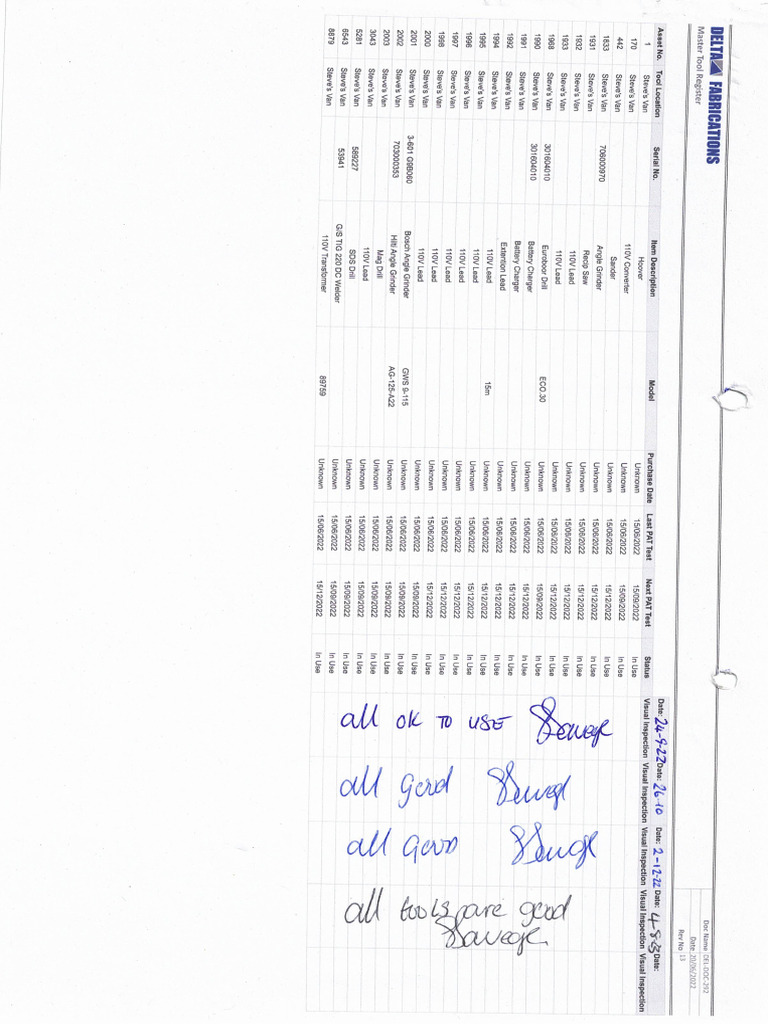 DELTA FABRICATIONS
Master Tool Register
Doc Name DEL-DOC-292
Date 20/06/2022
Rev No 13
Date: 24-9-22 Date: 26-10 Date: 2-12-22 Date: 4-8-23 Date:
Asset No. Tool Location Serial No. Item Description Model Purchase Date Last PAT Test Next PAT Test Status Visual Inspection Visual Inspection Visual Inspection Visual Inspection Visual Inspection
1 Steve's Van Hoover Unknown 15/06/2022 15/09/2022 In Use
170 Steve's Van 110V Converter Unknown 15/06/2022 15/09/2022 In Use
442 Steve's Van Sander Unknown 15/06/2022 15/12/2022 In Use
1833 Steve's Van 708000970 Angle Grinder Unknown 15/06/2022 15/12/2022 In Use
1931 Steve's Van Recip Saw Unknown 15/06/2022 15/12/2022 In Use
1932 Steve's Van 110V Lead Unknown 15/06/2022 15/12/2022 In Use
1933 Steve's Van 110V Lead Unknown 15/06/2022 15/12/2022 In Use
1968 Steve's Van 301604010 Euroboor Drill ECO.30 Unknown 15/06/2022 15/09/2022 In Use
1990 Steve's Van 301604010 Battery Charger Unknown 15/06/2022 15/12/2022 In Use
1991 Steve's Van Battery Charger Unknown 15/06/2022 15/12/2022 In Use
1992 Steve's Van Extention Lead Unknown 15/06/2022 15/12/2022 In Use
1994 Steve's Van 110V Lead 15m Unknown 15/06/2022 15/12/2022 In Use
1995 Steve's Van 110V Lead Unknown 15/06/2022 15/12/2022 In Use
1996 Steve's Van 110V Lead Unknown 15/06/2022 15/12/2022 In Use
1997 Steve's Van 110V Lead Unknown 15/06/2022 15/12/2022 In Use
1998 Steve's Van 110V Lead Unknown 15/06/2022 15/12/2022 In Use
2000 Steve's Van 110V Lead Unknown 15/06/2022 15/09/2022 In Use
2001 Steve's Van 3-601 G9B060 Bosch Angle Grinder GWS 9-115 Unknown 15/06/2022 15/09/2022 In Use
2002 Steve's Van 703000353 Hilti Angle Grinder AG-125-A22 Unknown 15/06/2022 15/09/2022 In Use
2003 Steve's Van Mag Drill Unknown 15/06/2022 15/09/2022 In Use
3043 Steve's Van 110V Lead Unknown 15/06/2022 15/09/2022 In Use
5281 Steve's Van 589227 SDS Drill Unknown 15/06/2022 15/09/2022 In Use
6543 Steve's Van 53941 G/S TIG 220 DC Welder Unknown 15/06/2022 15/09/2022 In Use
8879 Steve's Van 110V Transformer 89759 Unknown 15/06/2022 15/12/2022 In Use
all OK TO USE
all good
all Good
all tools are good